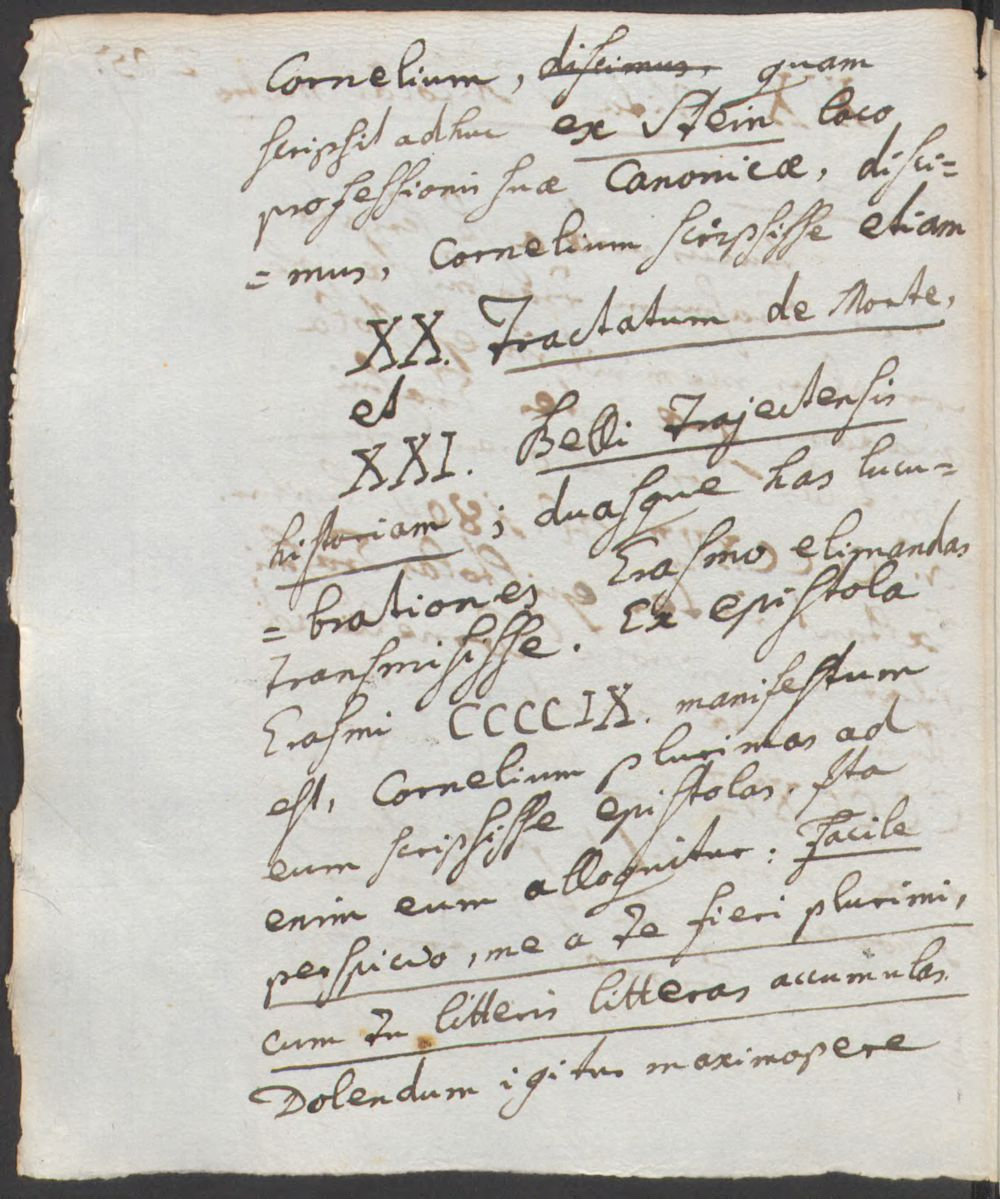 Cornelium, discimus, quam
scripsit adhuc ex Stein loco
professionis suæ Canonicæ, disci=
=mus, Cornelium scripsisse etiam
XX. Tractatum de Morte,
et
XXI. Belli Trajectensis
historiam; duasque has lucu=
=brationes Erasmo elimandas
transmisisse. Ex epistola
Erasmi CCCCIX. manifestum
est, Cornelium plurimas ad
eum scripsisse epistolas. Ita
enim eum alloquitur: Facile
perspicio, me a Te fieri plurimi,
cum Tu litteris litteras accumulas.
Dolendum igitur maximopere